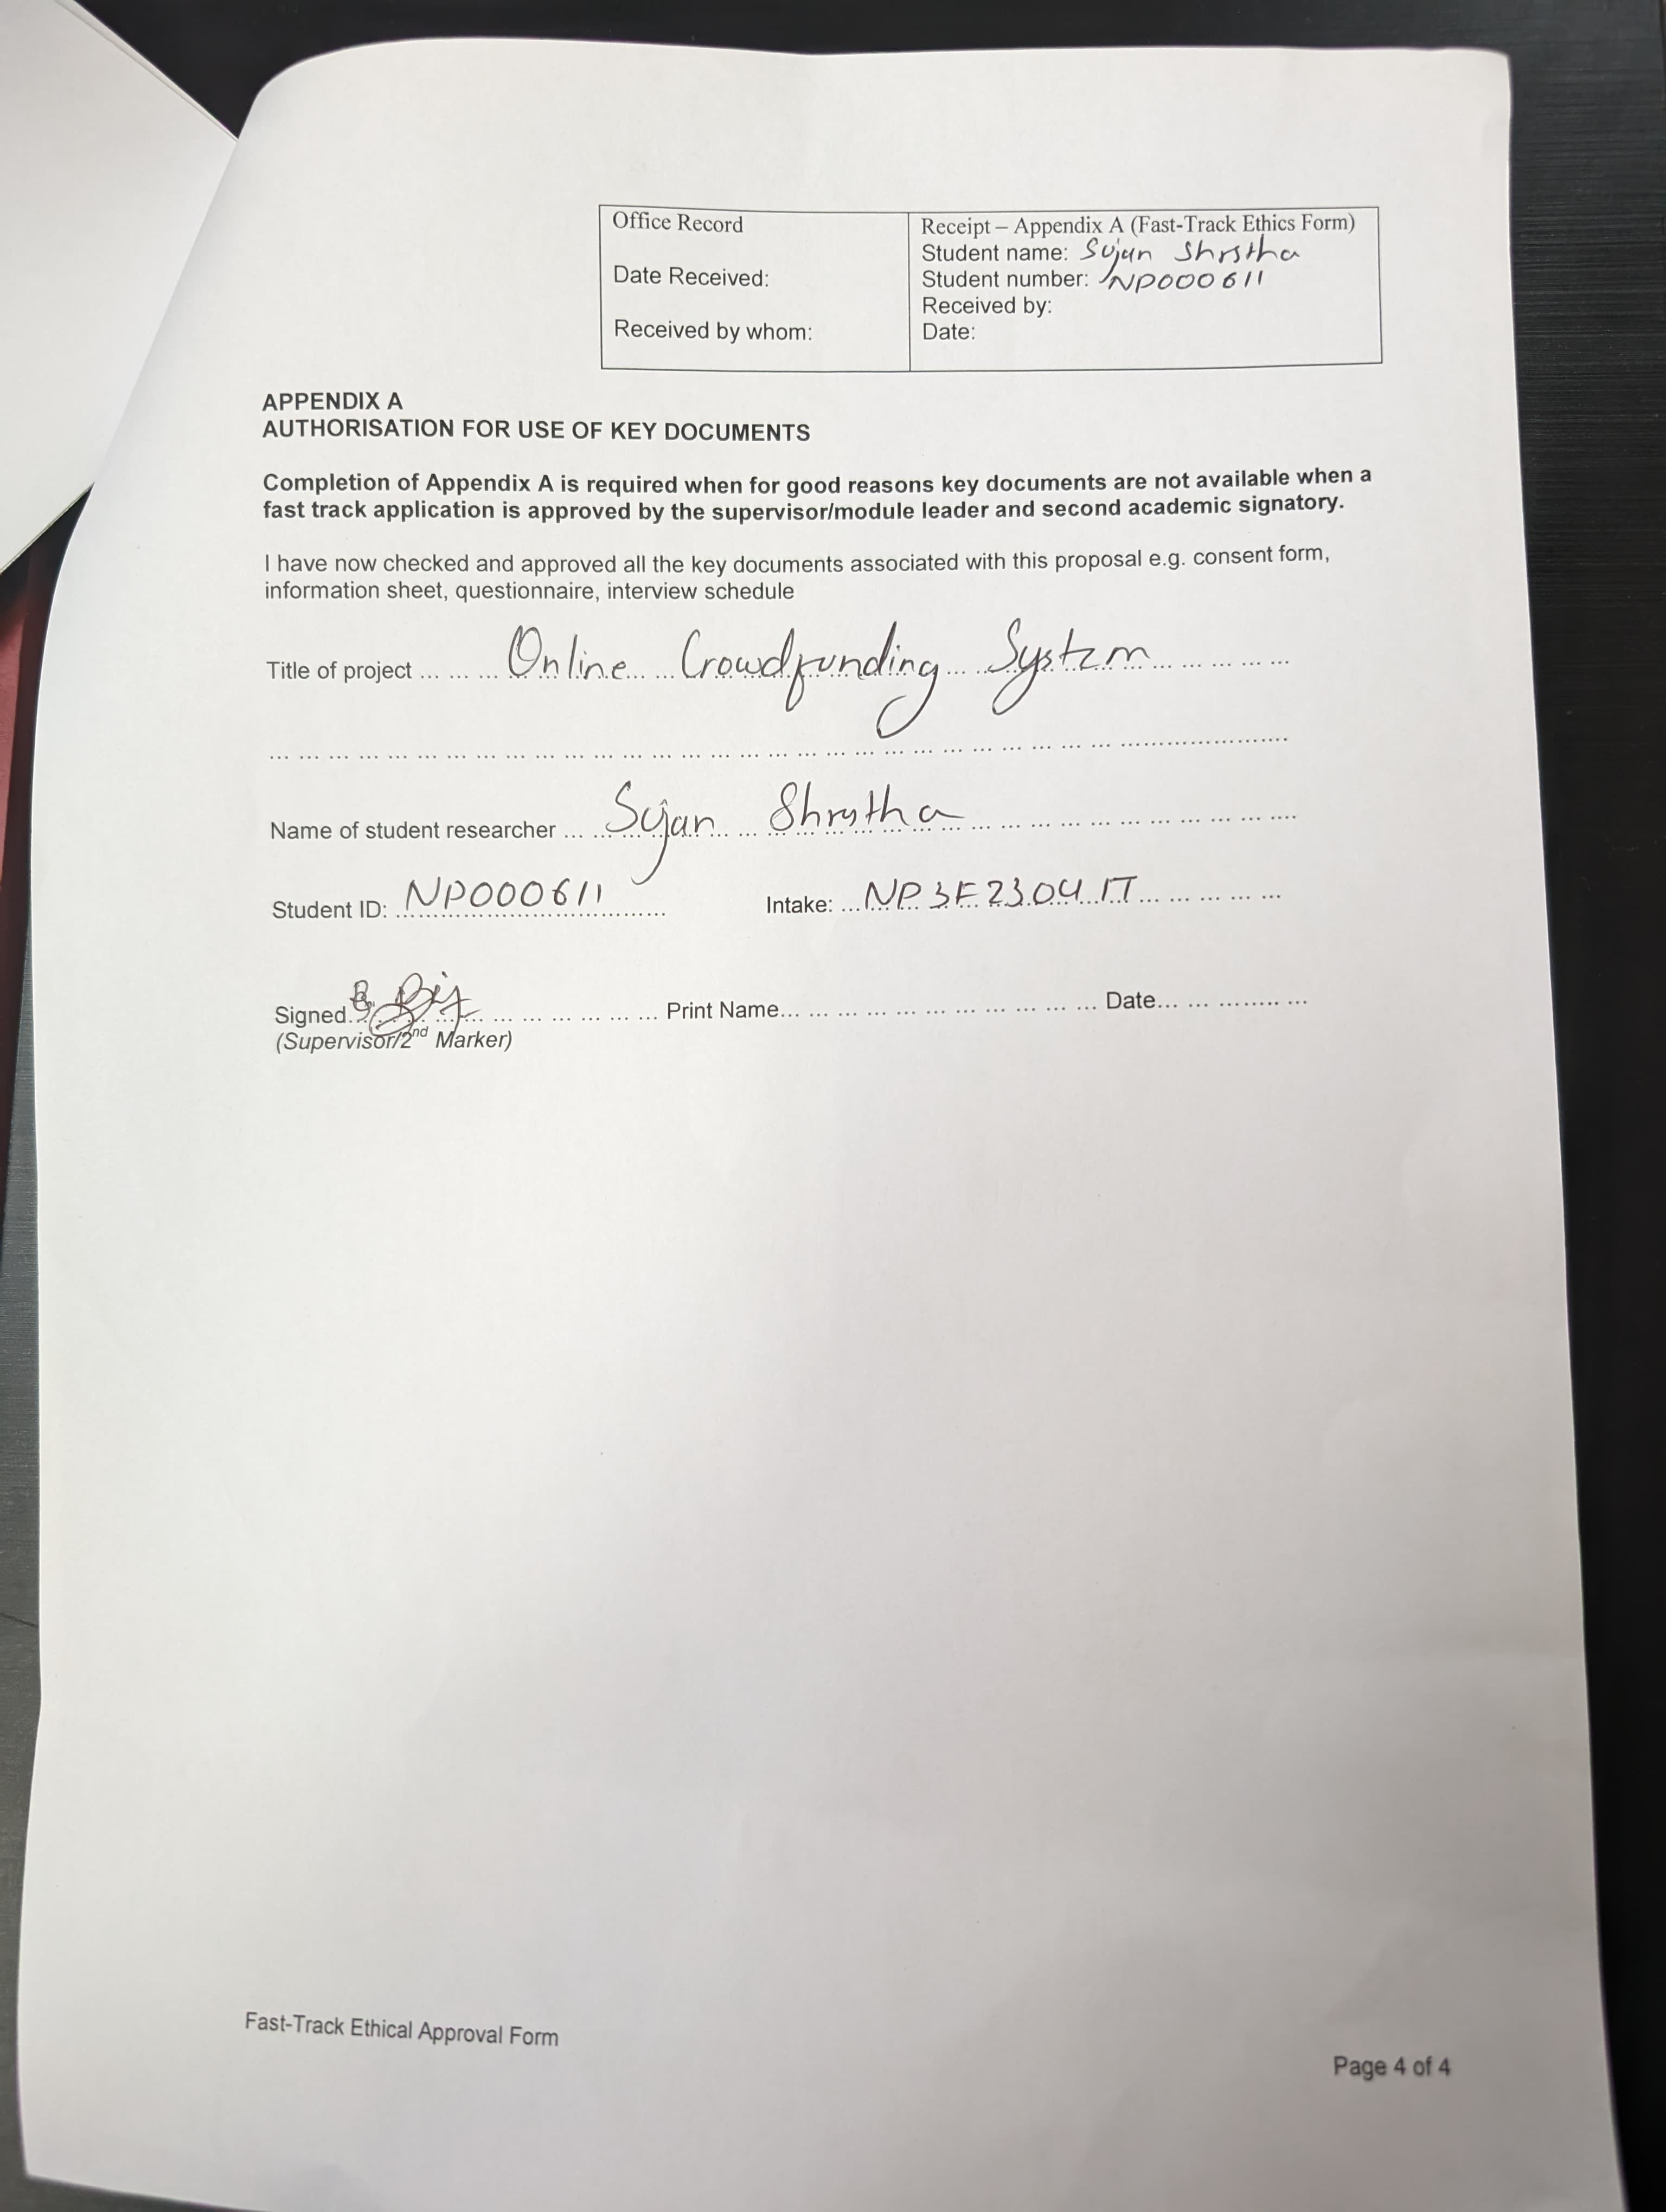 Office Record
Date Received:
Received by whom:
Receipt – Appendix A (Fast-Track Ethics Form)
Student name: Sujan Shrstha
Student number: NP000611
Received by:
Date:
APPENDIX A
AUTHORISATION FOR USE OF KEY DOCUMENTS
Completion of Appendix A is required when for good reasons key documents are not available when a
fast track application is approved by the supervisor/module leader and second academic signatory.
I have now checked and approved all the key documents associated with this proposal e.g. consent form,
information sheet, questionnaire, interview schedule
Title of project ... ... ... Online Crowdfunding System ... ... ... ...
... ... ... ... ... ... ... ... ... ... ... ... ... ... ... ... ... ... ... ... ... ... ... ... ... ... ... ... ... ...
Name of student researcher ... ... Sujan Shrstha ... ... ... ... ... ... ... ... ... ... ...
Student ID: NP000611 Intake: ... NP3F2304IT ... ... ... ... ...
Signed ... ... ... ... ... ... ... Print Name... ... ... ... ... ... ... ... ... ... ... Date... ... ......... ...
(Supervisor/2nd Marker)
Fast-Track Ethical Approval Form
Page 4 of 4